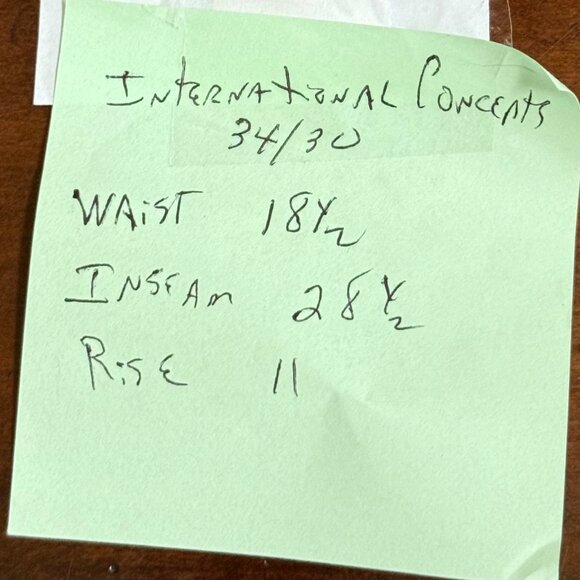 INTERNATIONAL CONCEPTS
34/30
WAIST 18 1/2
INSEAM 28 1/2
RISE 11